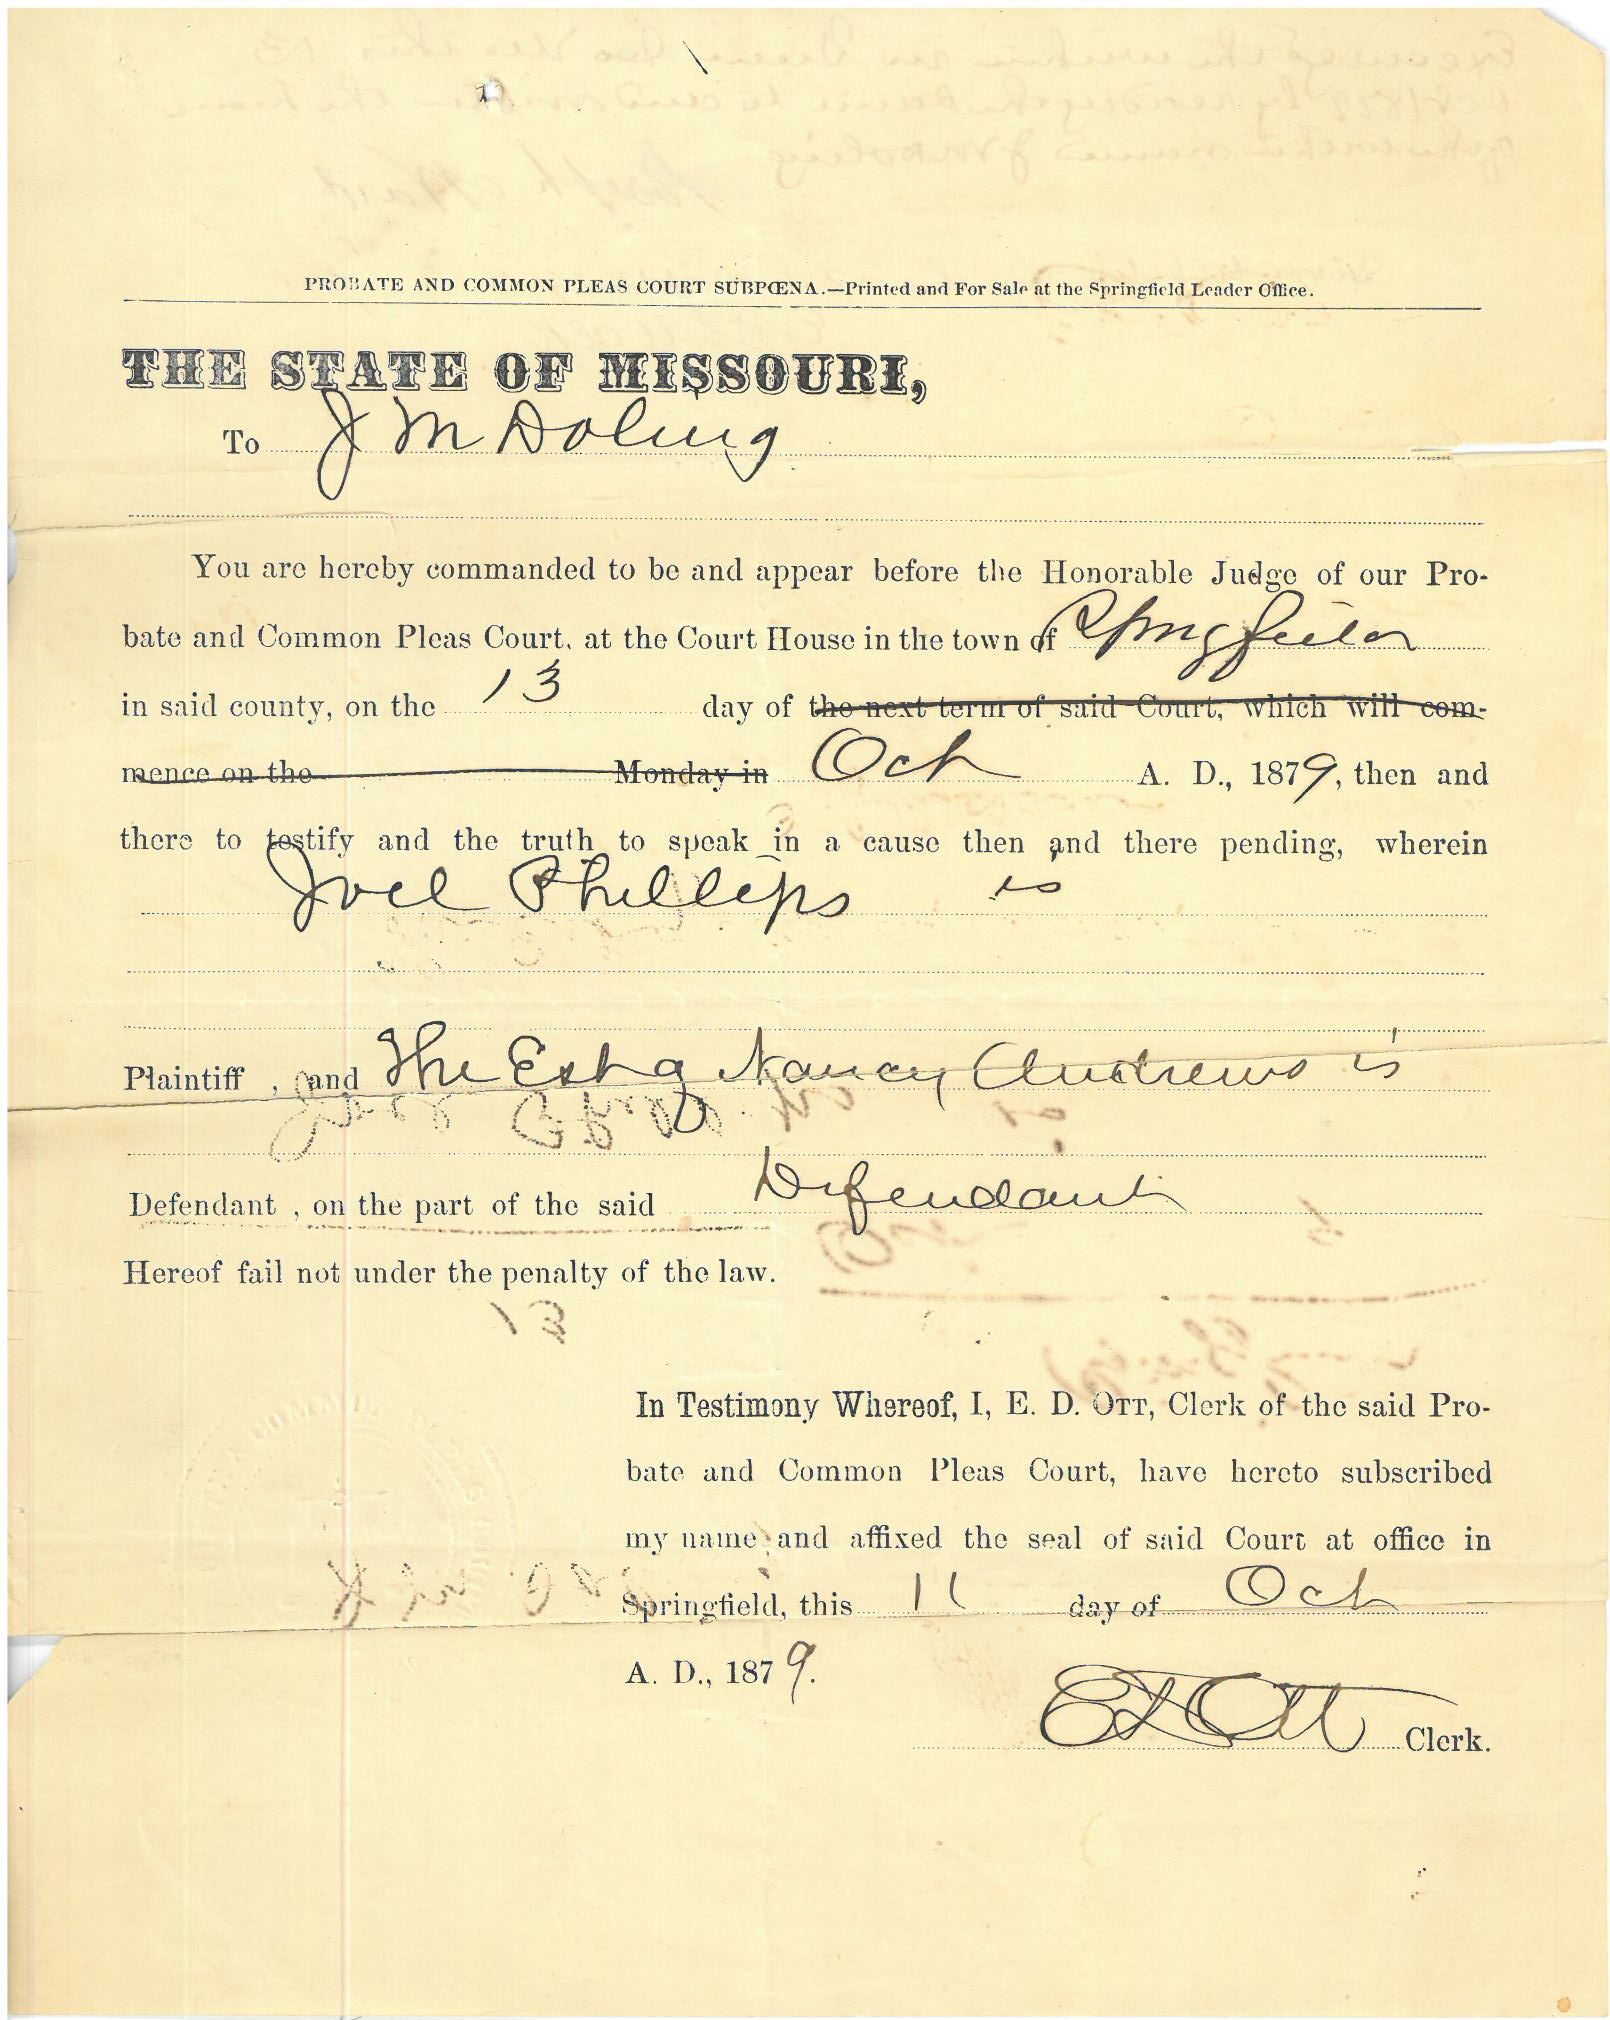 PROBATE AND COMMON PLEAS COURT SUBPŒNA.—Printed and For Sale at the Springfield Leader Office.
THE STATE OF MISSOURI,
To J M Doling
You are hereby commanded to be and appear before the Honorable Judge of our Pro-
bate and Common Pleas Court, at the Court House in the town of Springfield
in said county, on the 13 day of the next term of said Court, which will com-
mence on the Monday in Oct A. D., 1879, then and
there to testify and the truth to speak in a cause then and there pending, wherein
Joel Phillips is
Plaintiff , and The Est of Nancy Andrews is
Defendant , on the part of the said Defendant
Hereof fail not under the penalty of the law.
In Testimony Whereof, I, E. D. OTT, Clerk of the said Pro-
bate and Common Pleas Court, have hereto subscribed
my name and affixed the seal of said Court at office in
Springfield, this 11 day of Oct
A. D., 1879.
E D Ott Clerk.